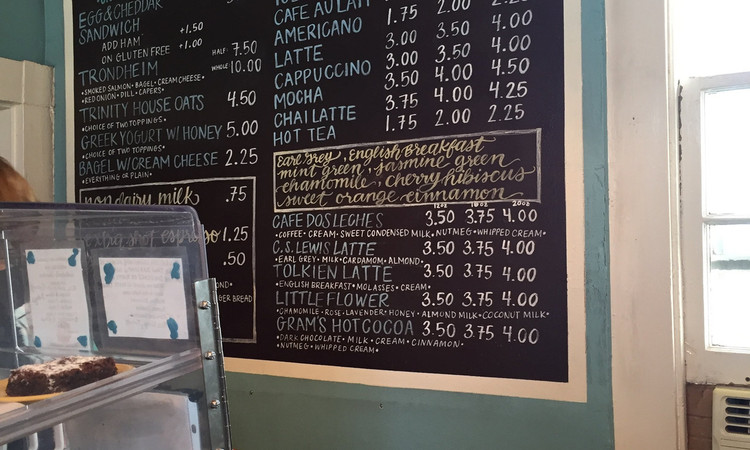 EGG & CHEDDAR
SANDWICH +1.50
ADD HAM +1.00
ON GLUTEN FREE
TRONDHEIM HALF: 7.50
WHOLE: 10.00
•SMOKED SALMON•BAGEL•CREAM CHEESE•
•RED ONION•DILL•CAPERS•
TRINITY HOUSE OATS 4.50
•CHOICE OF TWO TOPPINGS•
GREEK YOGURT W/ HONEY 5.00
•CHOICE OF TWO TOPPINGS•
BAGEL W/ CREAM CHEESE 2.25
•EVERYTHING OR PLAIN•
non dairy milk .75
extra shot espresso 1.25
.50
GER BREAD
CAFE AU LAIT
AMERICANO 1.75 2.00 2.25
LATTE 3.00 3.50 4.00
CAPPUCCINO 3.00 3.50 4.00
MOCHA 3.50 4.00 4.50
CHAI LATTE 3.75 4.00 4.25
HOT TEA 1.75 2.00 2.25
Earl Grey, English Breakfast
mint green, jasmine green
chamomile, cherry hibiscus
sweet orange cinnamon
12oz 16oz 20oz
CAFE DOS LECHES 3.50 3.75 4.00
•COFFEE•CREAM•SWEET CONDENSED MILK•NUTMEG•WHIPPED CREAM•
C.S. LEWIS LATTE 3.50 3.75 4.00
•EARL GREY•MILK•CARDAMOM•ALMOND•
TOLKIEN LATTE 3.50 3.75 4.00
•ENGLISH BREAKFAST•MOLASSES•CREAM•
LITTLE FLOWER 3.50 3.75 4.00
•CHAMOMILE•ROSE•LAVENDER•HONEY•ALMOND MILK•COCONUT MILK•
GRAM'S HOT COCOA 3.50 3.75 4.00
•DARK CHOCOLATE•MILK•CREAM•CINNAMON•
•NUTMEG•WHIPPED CREAM•